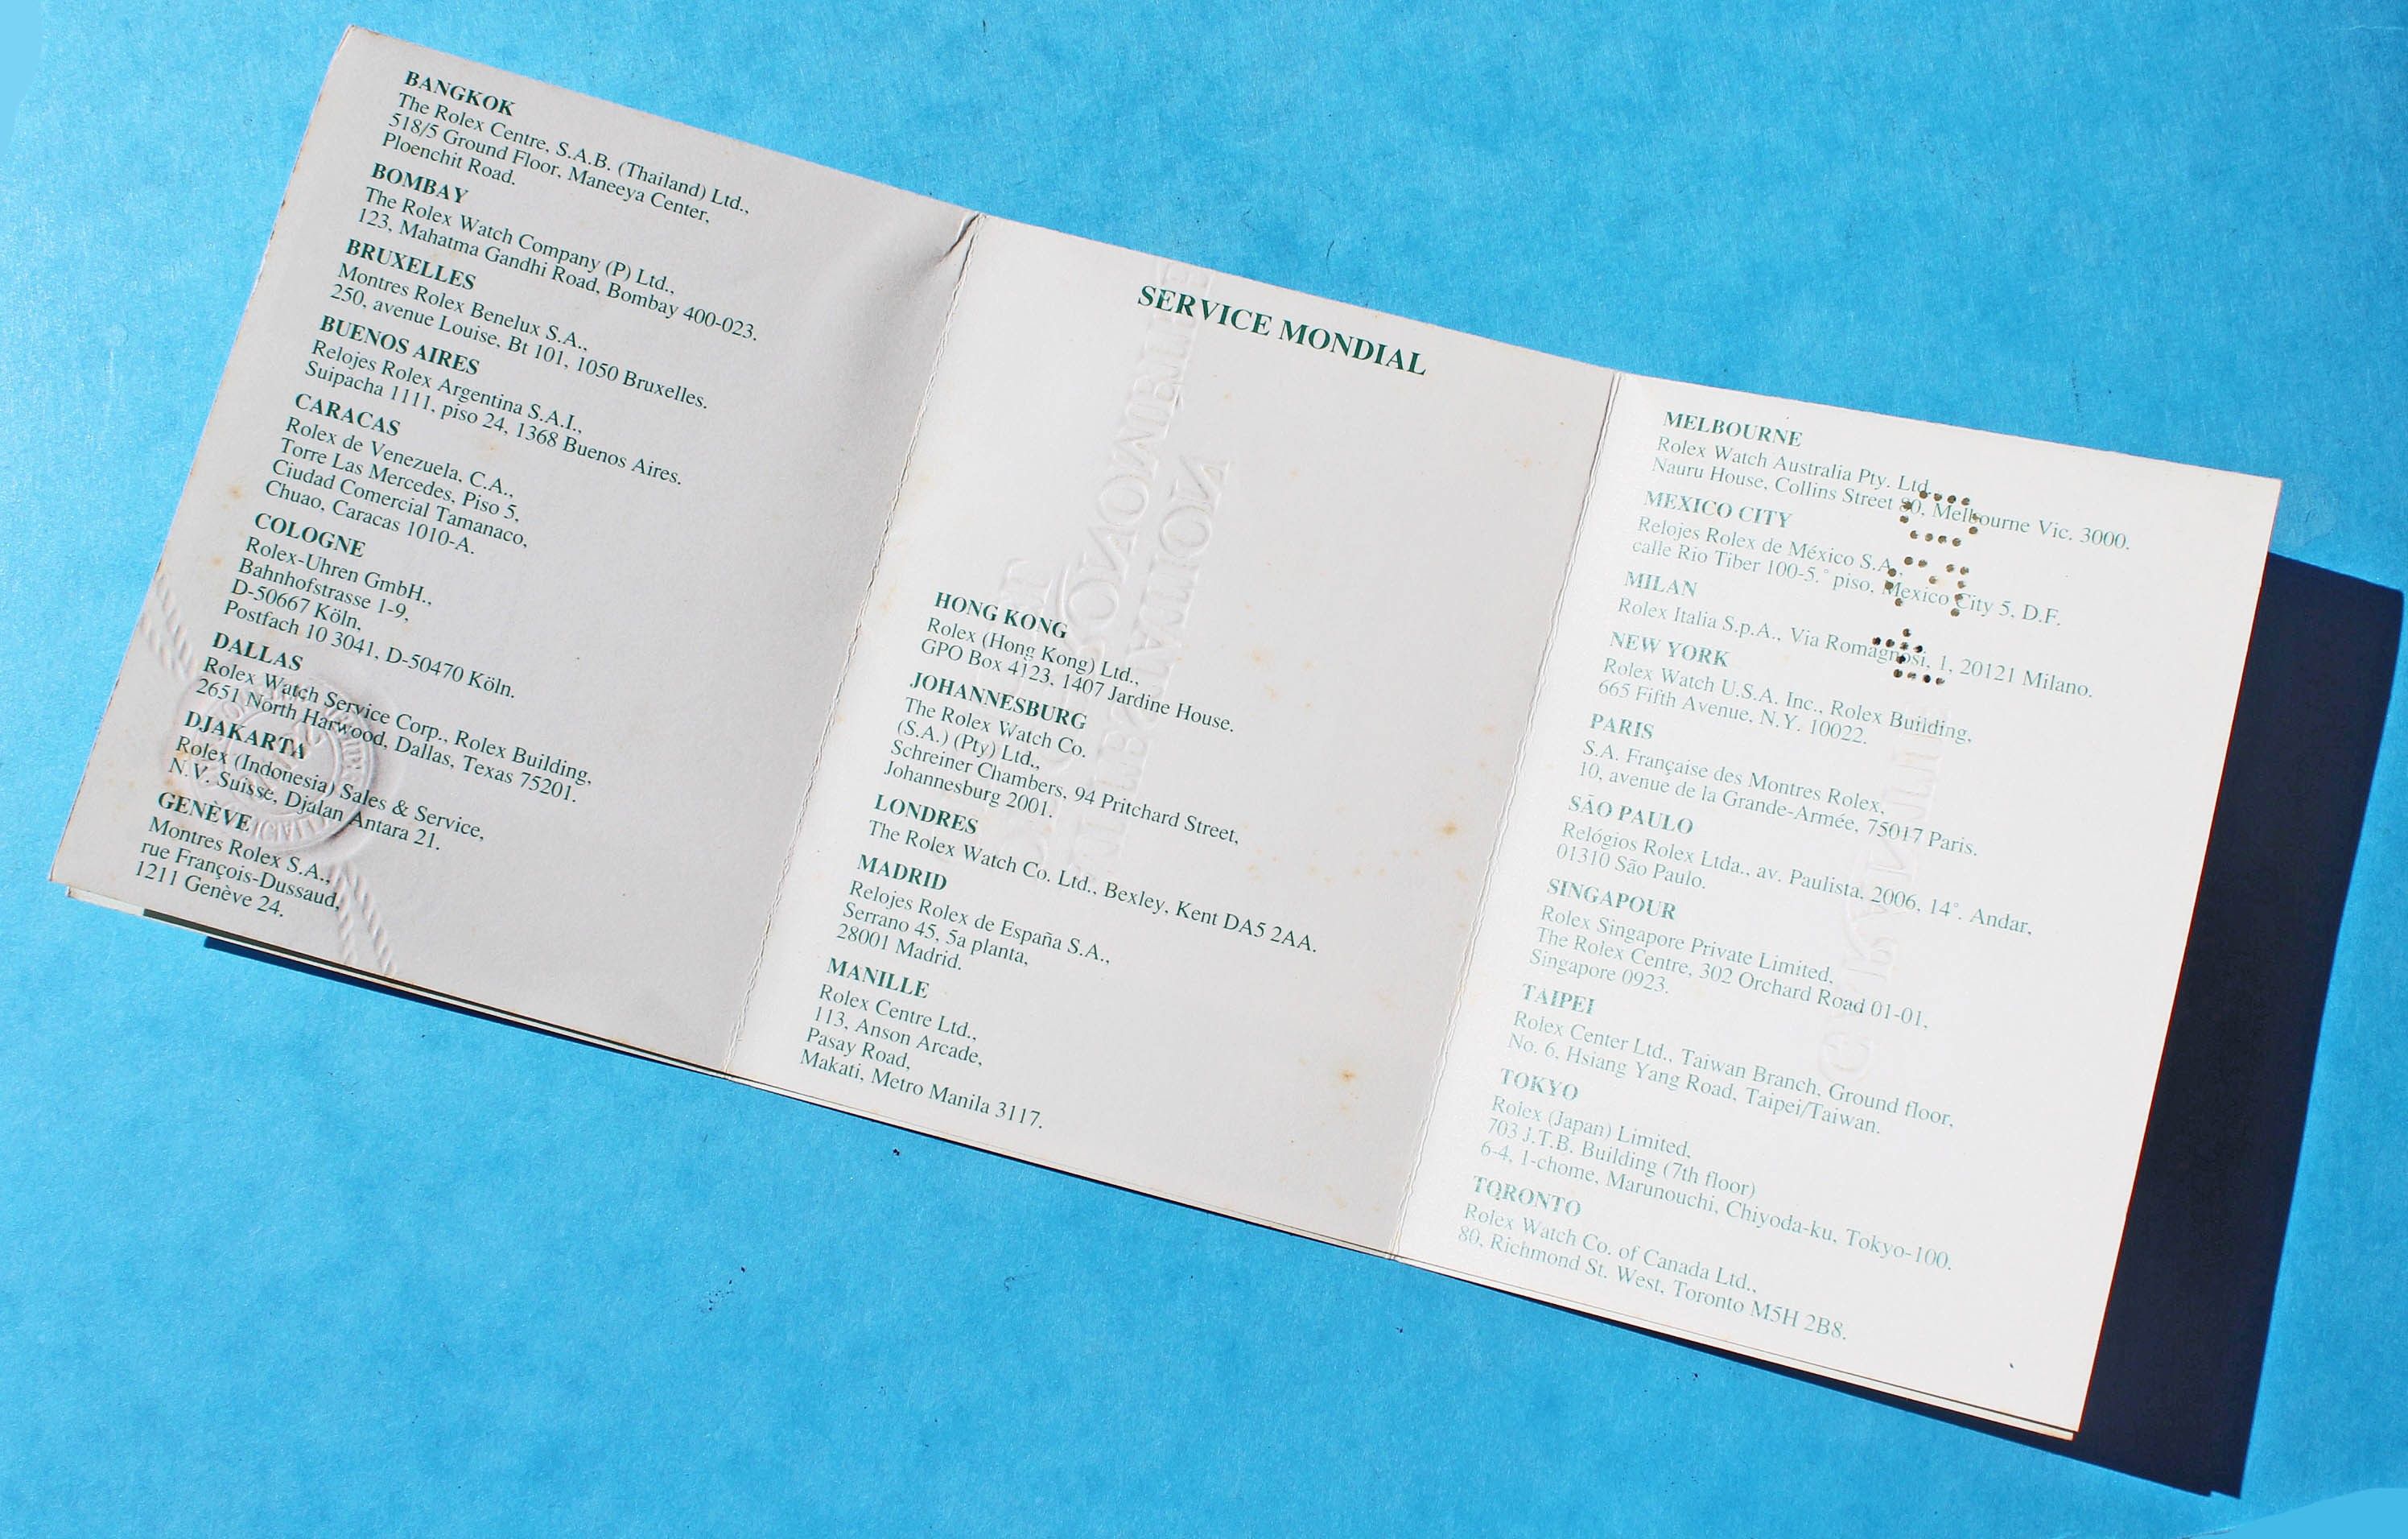 BANGKOK
The Rolex Centre, S.A.B. (Thailand) Ltd.,
518/5 Ground Floor, Maneeya Center,
Ploenchit Road.
BOMBAY
The Rolex Watch Company (P) Ltd.,
123, Mahatma Gandhi Road, Bombay 400-023.
BRUXELLES
Montres Rolex Benelux S.A.,
250, avenue Louise, Bt 101, 1050 Bruxelles.
BUENOS AIRES
Relojes Rolex Argentina S.A.I.,
Suipacha 1111, piso 24, 1368 Buenos Aires.
CARACAS
Rolex de Venezuela, C.A.,
Torre Las Mercedes, Piso 5,
Ciudad Comercial Tamanaco,
Chuao, Caracas 1010-A.
COLOGNE
Rolex-Uhren GmbH.,
Bahnhofstrasse 1-9,
D-50667 Köln,
Postfach 10 3041, D-50470 Köln.
DALLAS
Rolex Watch Service Corp., Rolex Building,
2651 North Harwood, Dallas, Texas 75201.
DJAKARTA
Rolex (Indonesia) Sales & Service,
N.V. Suisse, Djalan Antara 21.
GENÈVE
Montres Rolex S.A.,
rue François-Dussaud,
1211 Genève 24.
SERVICE MONDIAL
HONG KONG
Rolex (Hong Kong) Ltd.,
GPO Box 4123, 1407 Jardine House.
JOHANNESBURG
The Rolex Watch Co.
(S.A.) (Pty) Ltd.,
Schreiner Chambers, 94 Pritchard Street,
Johannesburg 2001.
LONDRES
The Rolex Watch Co. Ltd., Bexley, Kent DA5 2AA.
MADRID
Relojes Rolex de España S.A.,
Serrano 45, 5a planta,
28001 Madrid.
MANILLE
Rolex Centre Ltd.,
113, Anson Arcade,
Pasay Road,
Makati, Metro Manila 3117.
MELBOURNE
Rolex Watch Australia Pty. Ltd.,
Nauru House, Collins Street 80, Melbourne Vic. 3000.
MEXICO CITY
Relojes Rolex de México S.A.,
calle Rio Tiber 100-5.° piso, Mexico City 5, D.F.
MILAN
Rolex Italia S.p.A., Via Romagnosi, 1, 20121 Milano.
NEW YORK
Rolex Watch U.S.A. Inc., Rolex Building,
665 Fifth Avenue, N.Y. 10022.
PARIS
S.A. Française des Montres Rolex,
10, avenue de la Grande-Armée, 75017 Paris.
SÃO PAULO
Relógios Rolex Ltda., av. Paulista, 2006, 14°. Andar,
01310 São Paulo.
SINGAPOUR
Rolex Singapore Private Limited,
The Rolex Centre, 302 Orchard Road 01-01,
Singapore 0923.
TAIPEI
Rolex Center Ltd., Taiwan Branch, Ground floor,
No. 6, Hsiang Yang Road, Taipei/Taiwan.
TOKYO
Rolex (Japan) Limited,
703 J.T.B. Building (7th floor)
6-4, 1-chome, Marunouchi, Chiyoda-ku, Tokyo-100.
TORONTO
Rolex Watch Co. of Canada Ltd.,
80, Richmond St. West, Toronto M5H 2B8.